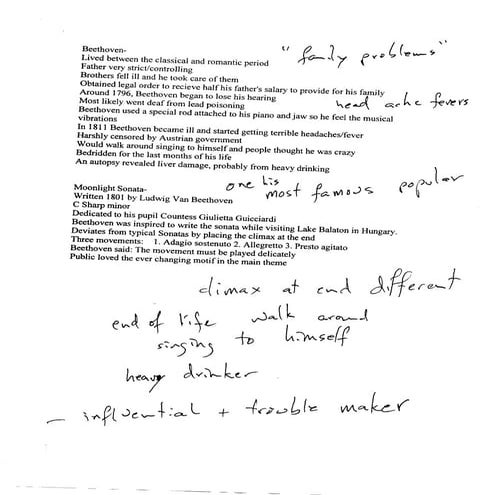 Beethoven-
Lived between the classical and romantic period
"family problems"
Father very strict/controlling
Brothers fell ill and he took care of them
Obtained legal order to recieve half his father's salary to provide for his family
Around 1796, Beethoven began to lose his hearing
head ache fevers
Most likely went deaf from lead poisoning
Beethoven used a special rod attached to his piano and jaw so he feel the musical
vibrations
In 1811 Beethoven became ill and started getting terrible headaches/fever
Harshly censored by Austrian government
Would walk around singing to himself and people thought he was crazy
Bedridden for the last months of his life
An autopsy revealed liver damage, probably from heavy drinking
one his
most famous popular
Moonlight Sonata-
Written 1801 by Ludwig Van Beethoven
C Sharp minor
Dedicated to his pupil Countess Giulietta Guicciardi
Beethoven was inspired to write the sonata while visiting Lake Balaton in Hungary.
Deviates from typical Sonatas by placing the climax at the end
Three movements: 1. Adagio sostenuto 2. Allegretto 3. Presto agitato
Beethoven said: The movement must be played delicately
Public loved the ever changing motif in the main theme
climax at end different
end of life walk around
singing to himself
heavy drinker
- influential + trouble maker